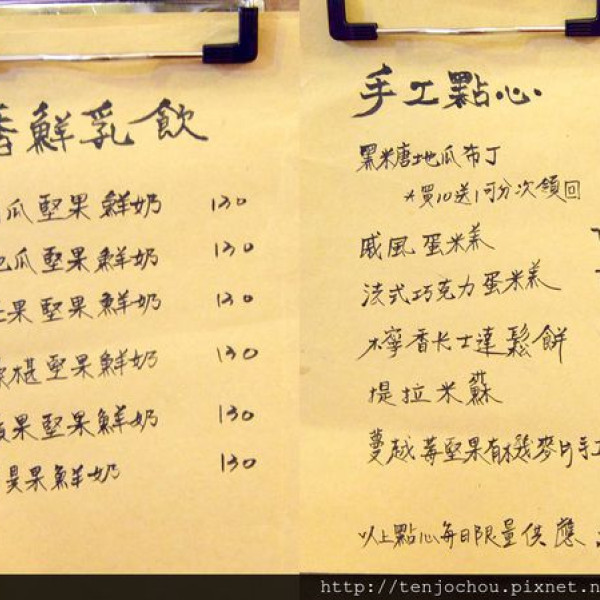 香鮮乳飲
瓜堅果鮮奶 130
地瓜堅果鮮奶 130
果堅果鮮奶 130
椹堅果鮮奶 130
果堅果鮮奶 130
果鮮奶 130
手工點心
黑糖地瓜布丁
*買10送1可分次領回
戚風蛋糕
法式巧克力蛋糕
檸香卡士達鬆餅
提拉米蘇
蔓越莓堅果有機麥片手工
以上點心每日限量供應
http://tenjochou.pixnet.n